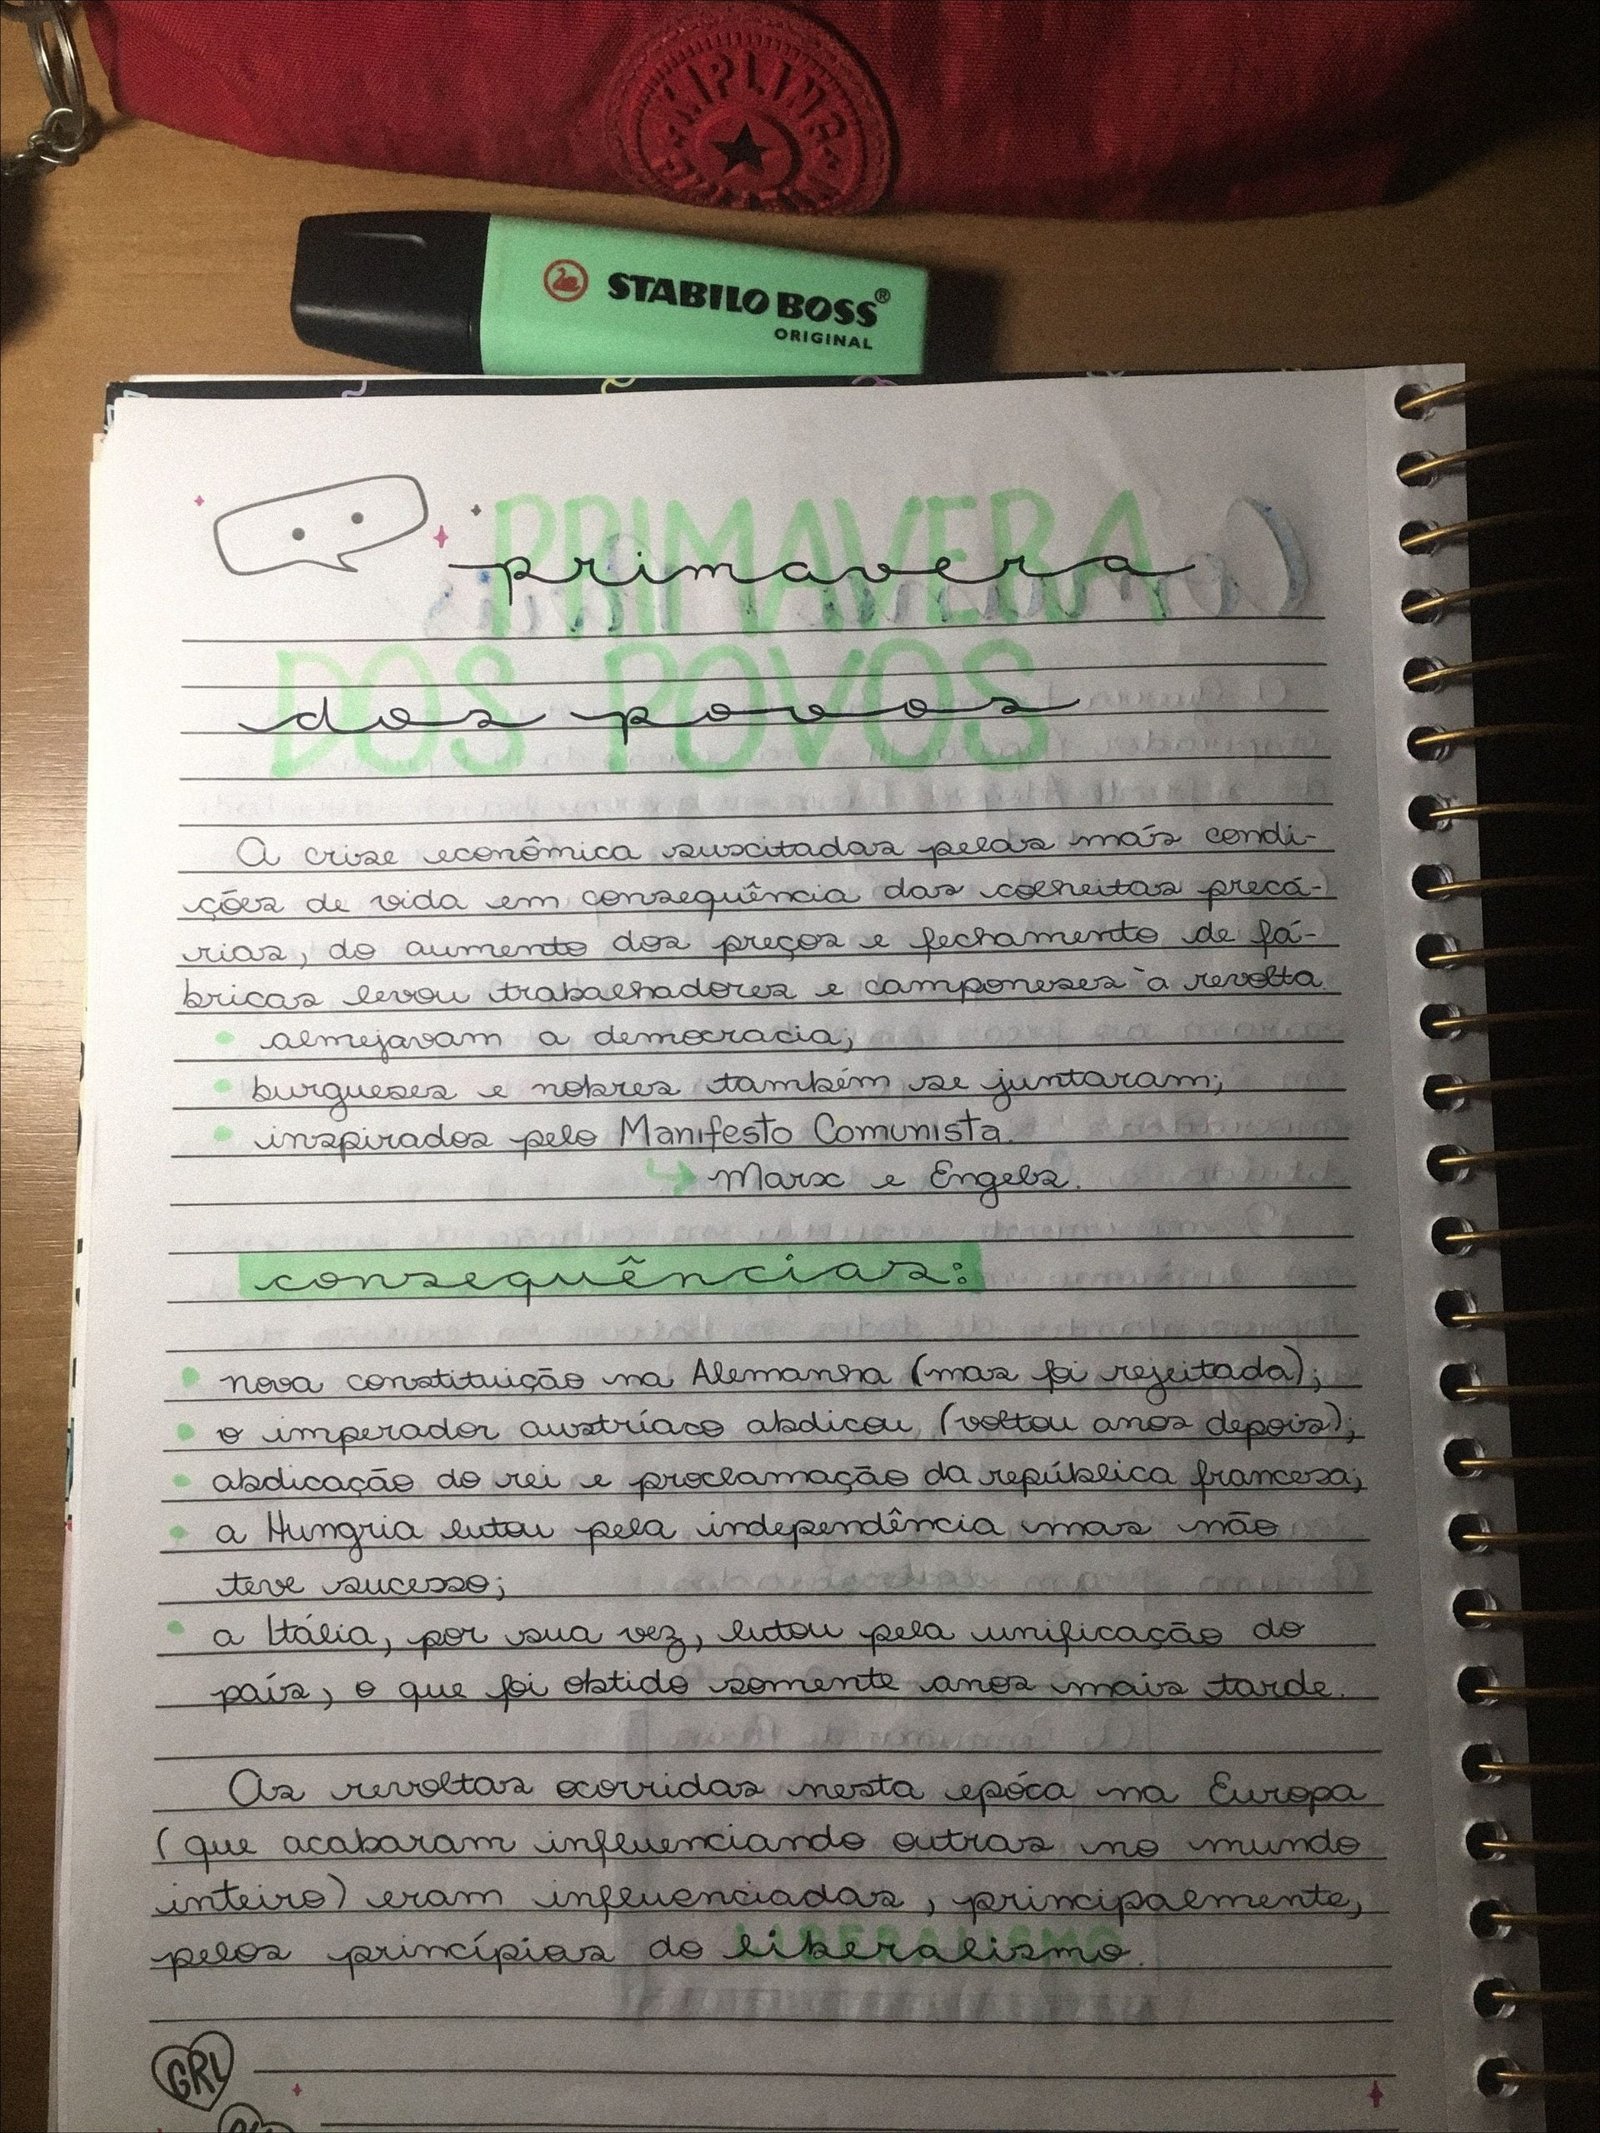 KIPLING
STABILO BOSS®
ORIGINAL
PRIMAVERA
primavera
DOS POVOS
dos povos
A crise econômica suscitadas pelas más condi-
ções de vida em consequência das colheitas precá-
rias, do aumento dos preços e fechamento de fá-
bricas levou trabalhadores e camponeses à revolta.
• almejavam a democracia;
• burgueses e nobres também se juntaram;
• inspirados pelo Manifesto Comunista.
↳ Marx e Engels.
consequências:
• nova constituição na Alemanha (mas foi rejeitada);
• o imperador austríaco abdicou (voltou anos depois);
• abdicação do rei e proclamação da república francesa;
• a Hungria lutou pela independência mas não
teve sucesso;
• a Itália, por sua vez, lutou pela unificação do
país, o que foi obtido somente anos mais tarde.
As revoltas ocorridas nesta epóca na Europa
(que acabaram influenciando outras no mundo
inteiro) eram influenciadas, principalmente,
pelos princípios do liberalismo.
LIBERALISMO
GRL